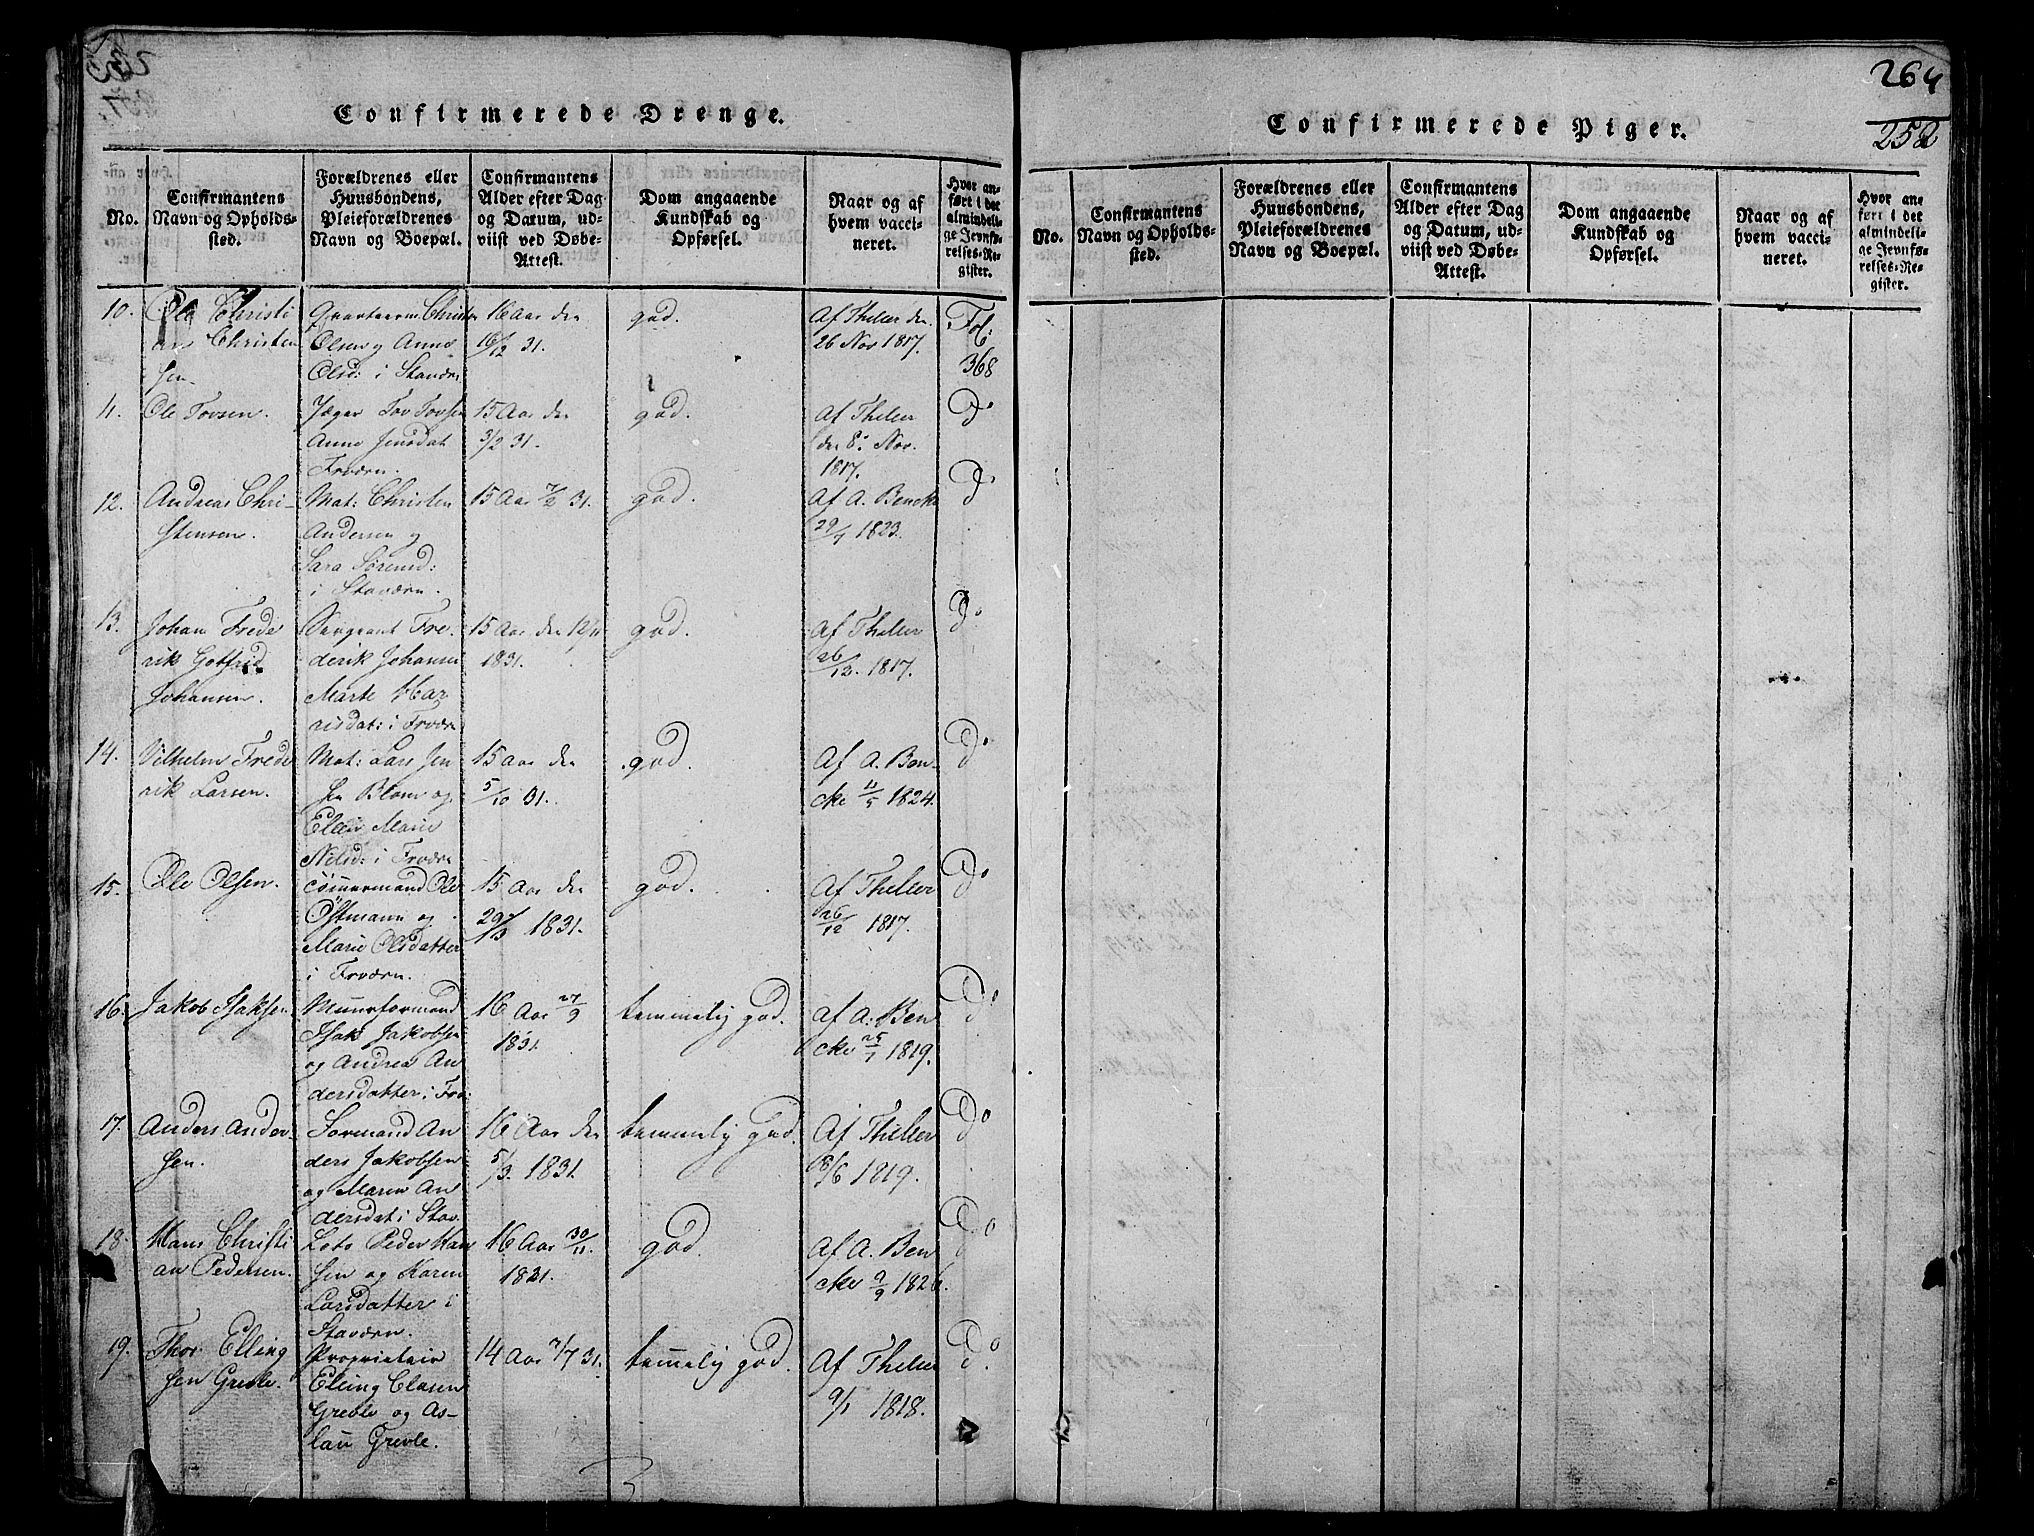 264
252
Confirmerede Drenge.
No.
Confirmantens
Navn og Opholds-
sted.
Forældrenes eller
Huusbondens,
Pleieforældrenes
Navn og Boepæl.
Confirmantens
Alder efter Dag
og Datum, ud-
viist ved Døbe-
Attest.
Dom angaaende
Kundskab og
Opførsel.
Naar og af
hvem vacci-
neret.
Hvor an-
ført i det
almindeli-
ge Jevnfø-
relses-Re-
gister.
10.
Ole Christi
an Christen
sen
Christen
Olsen og Anne
Olsd: i Staværn
16 Aar den
16/12 31.
god.
Af Theller den
26 Nov 1817.
Fol:
368
11.
Ole Tovsen.
Jæger Tov Tovsen
Anne Jensdat
Frværn.
15 Aar den
3/2 31.
god.
Af Theller
den 8. Nov.
1817.
Do
12.
Andreas Chri-
stensen.
Mat: Christen
Andersen og
Sara Sørensd:
i Staværn.
15 Aar 7/2 31.
god.
Af A. Bencke
29/7 1823.
Do
13.
Johan Frede
rik Gotfrid
Johansen.
Sergeant Fre-
derik Johansen
Marte
i Frværn
15 Aar den 12/11
1831.
god.
Af Theller
26/12. 1817.
Do
14.
Vilhelm Frede
rik Larsen.
Mat: Lars Jen
sen Blom og
Elen Marie
Nilsd: i Frværn
15 Aar den
5/10 31.
god.
Af A. Ben-
cke 11/5 1824.
Do
15.
Ole Olsen.
Tømmermand Ole
Østmann og
Marie Olsdatter
i Frværn.
15 Aar den
1831.
god.
Af Theller
26/12 1817.
Do
16.
Jakob Isaksen
Muurformand
Isak Jakobsen
og Andrea An
dersdatter i Frv:
16 Aar 27/9
1831.
temmelig god.
Af A. Ben
cke 25/7 1819.
Do
17.
Anders Ander-
sen.
Formand An
ders Jakobsen
og Maren An
dersdat i Stav.
16 Aar den
5/3. 1831.
temmelig god.
Af Theller
8/6 1819.
Do
18.
Hans Christi
an Pedersen.
Lots Peder Han
sen og Karen
Larsdatter i
Staværn.
16 Aar 30/11.
1831.
god.
Af A. Ben
cke 9/9 1826.
Do
19.
Thor Elling
sen Grevle.
Proprietair
Elling Clasen
Grevle og As-
lau Grevle.
14 Aar 7/7 31.
temelig god.
Af Theller
9/1 1818.
Do
Confirmerede Piger.
No.
Confirmantens
Navn og Opholds-
sted.
Forældrenes eller
Huusbondens,
Pleieforældrenes
Navn og Boepæl.
Confirmantens
Alder efter Dag
og Datum, ud-
viist ved Døbe-
Attest.
Dom angaaende
Kundskab og
Opførsel.
Naar og af
hvem vacci-
neret.
Hvor an-
ført i det
almindeli-
ge Jevnfø-
relses-Re-
gister.